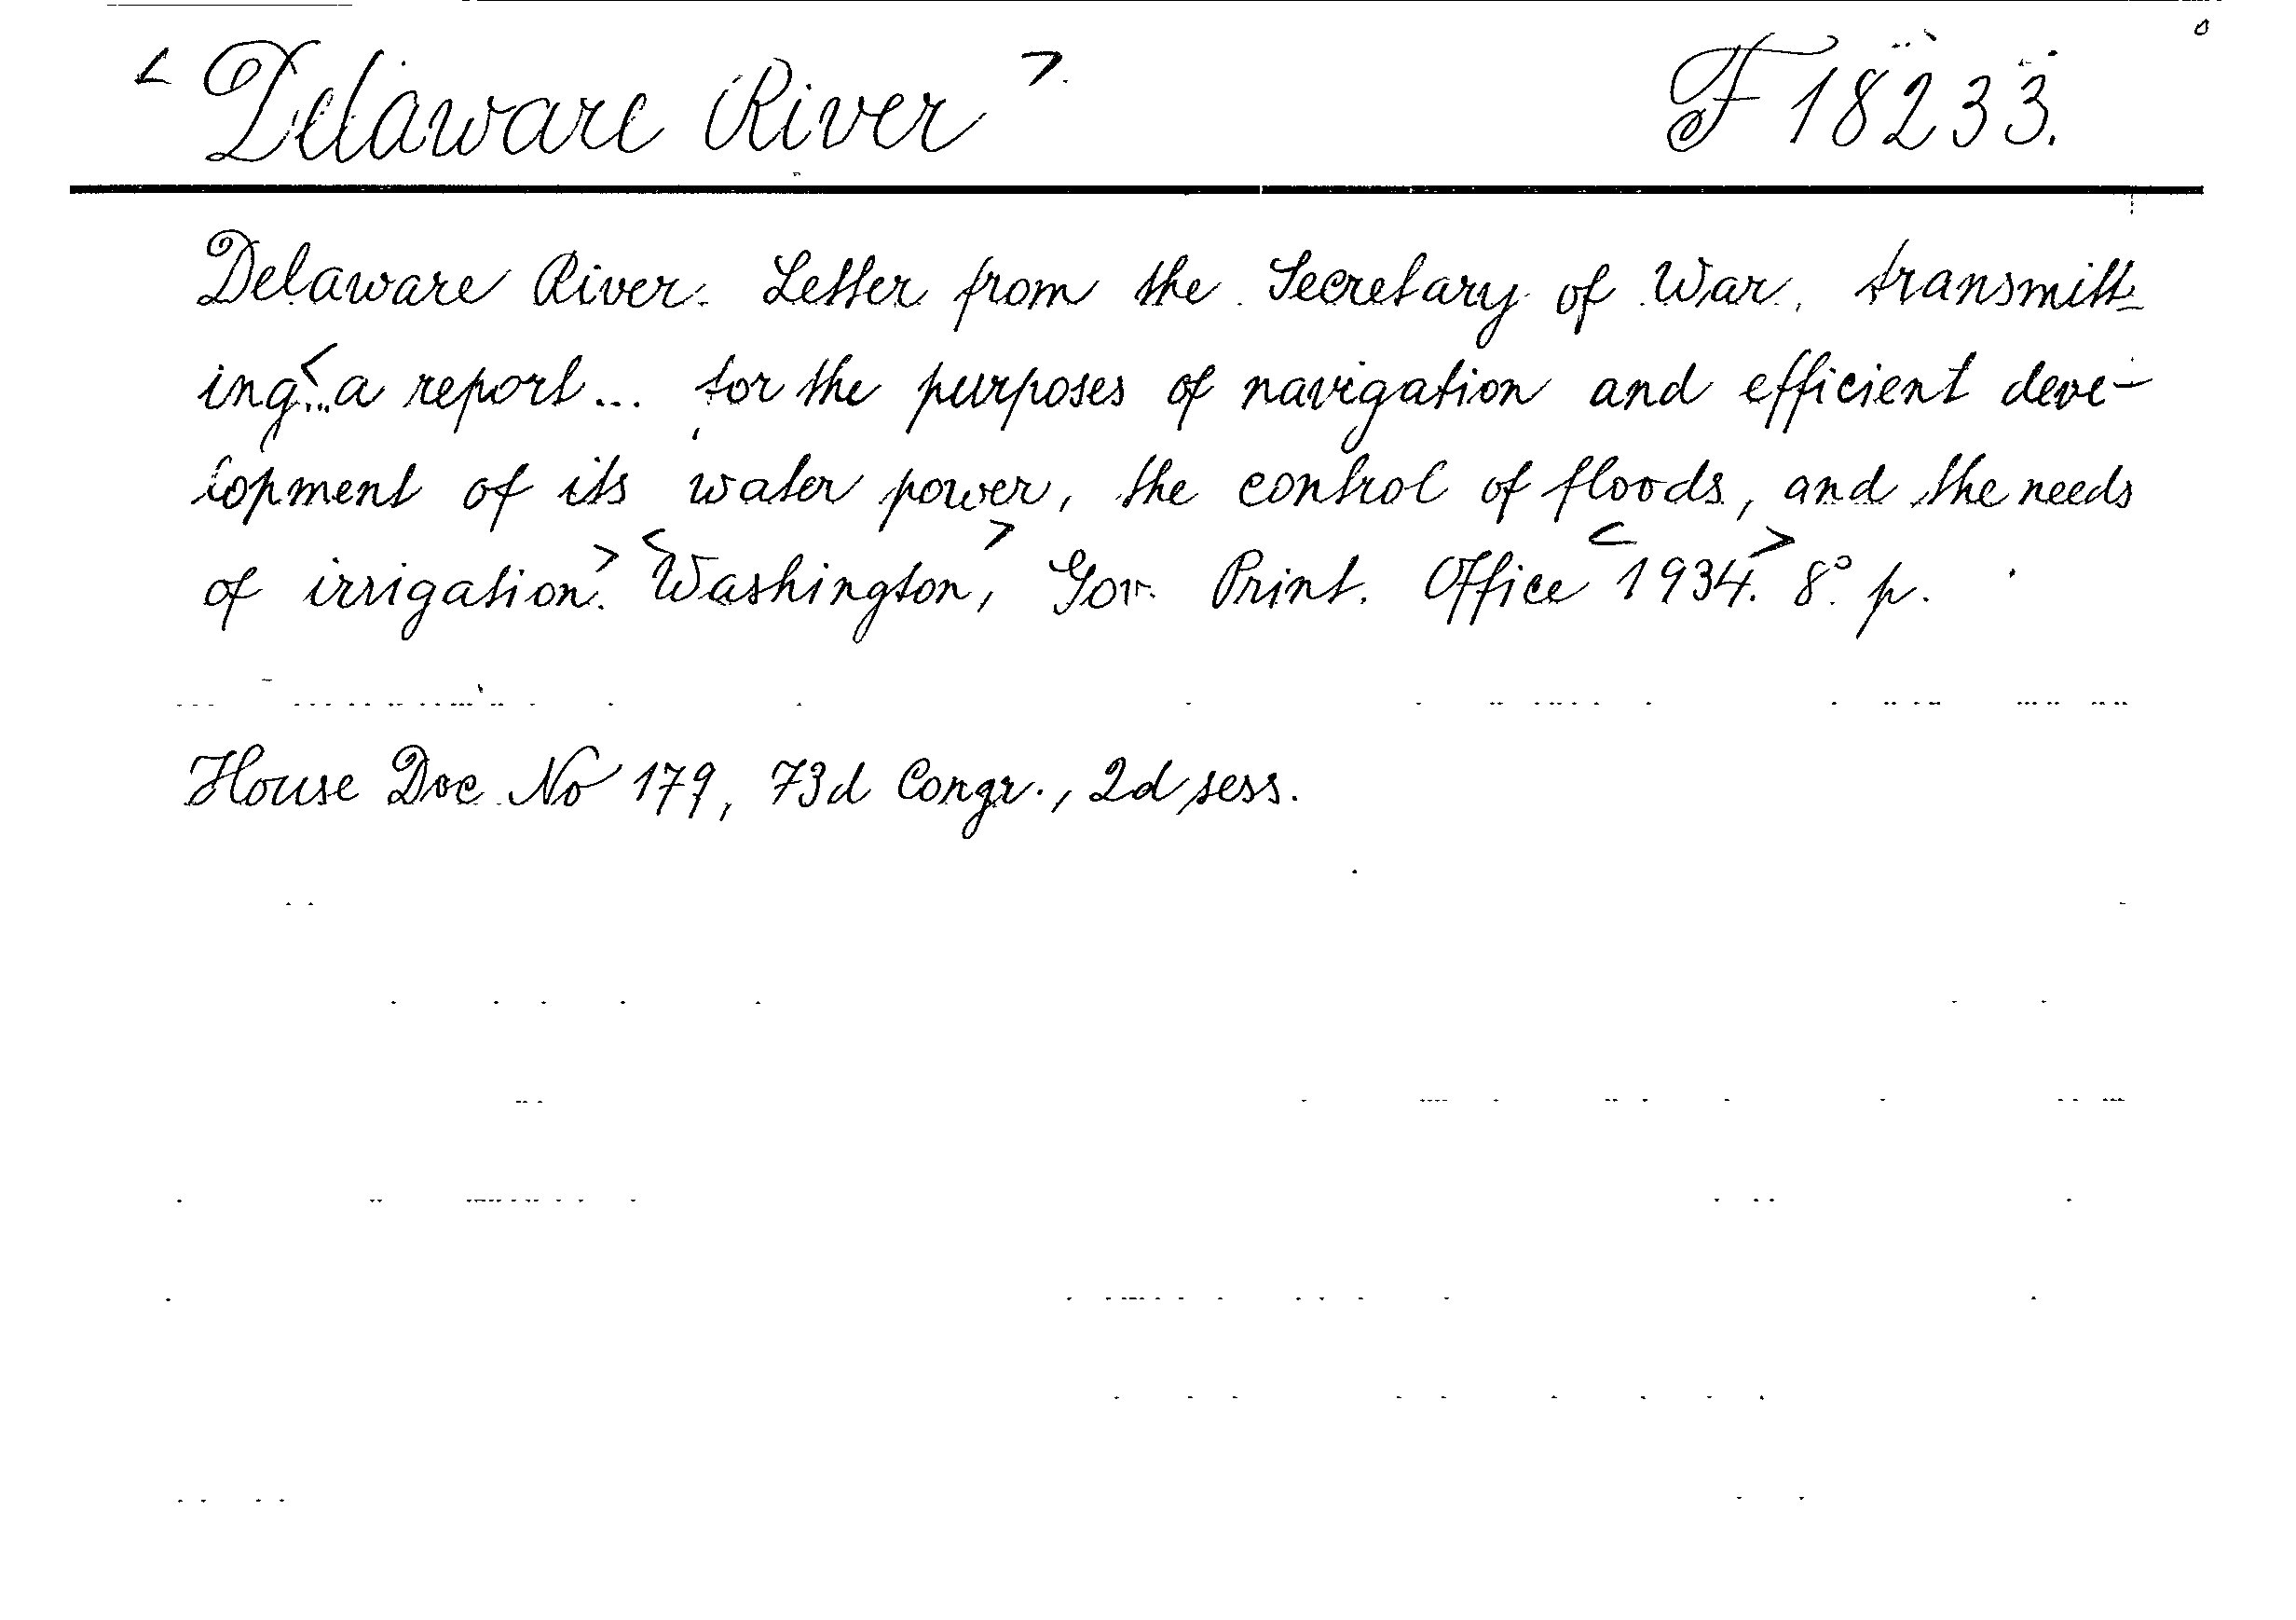 < Delaware River > F 18233.
Delaware River. Letter from the Secretary of War, transmitt-
ing <... a report ... for the purposes of navigation and efficient deve-
lopment of its water power, the control of floods, and the needs
of irrigation.> <Washington,> Gov. Print. Office <1934.> 8° p.
House Doc. No 179, 73d Congr., 2d sess.